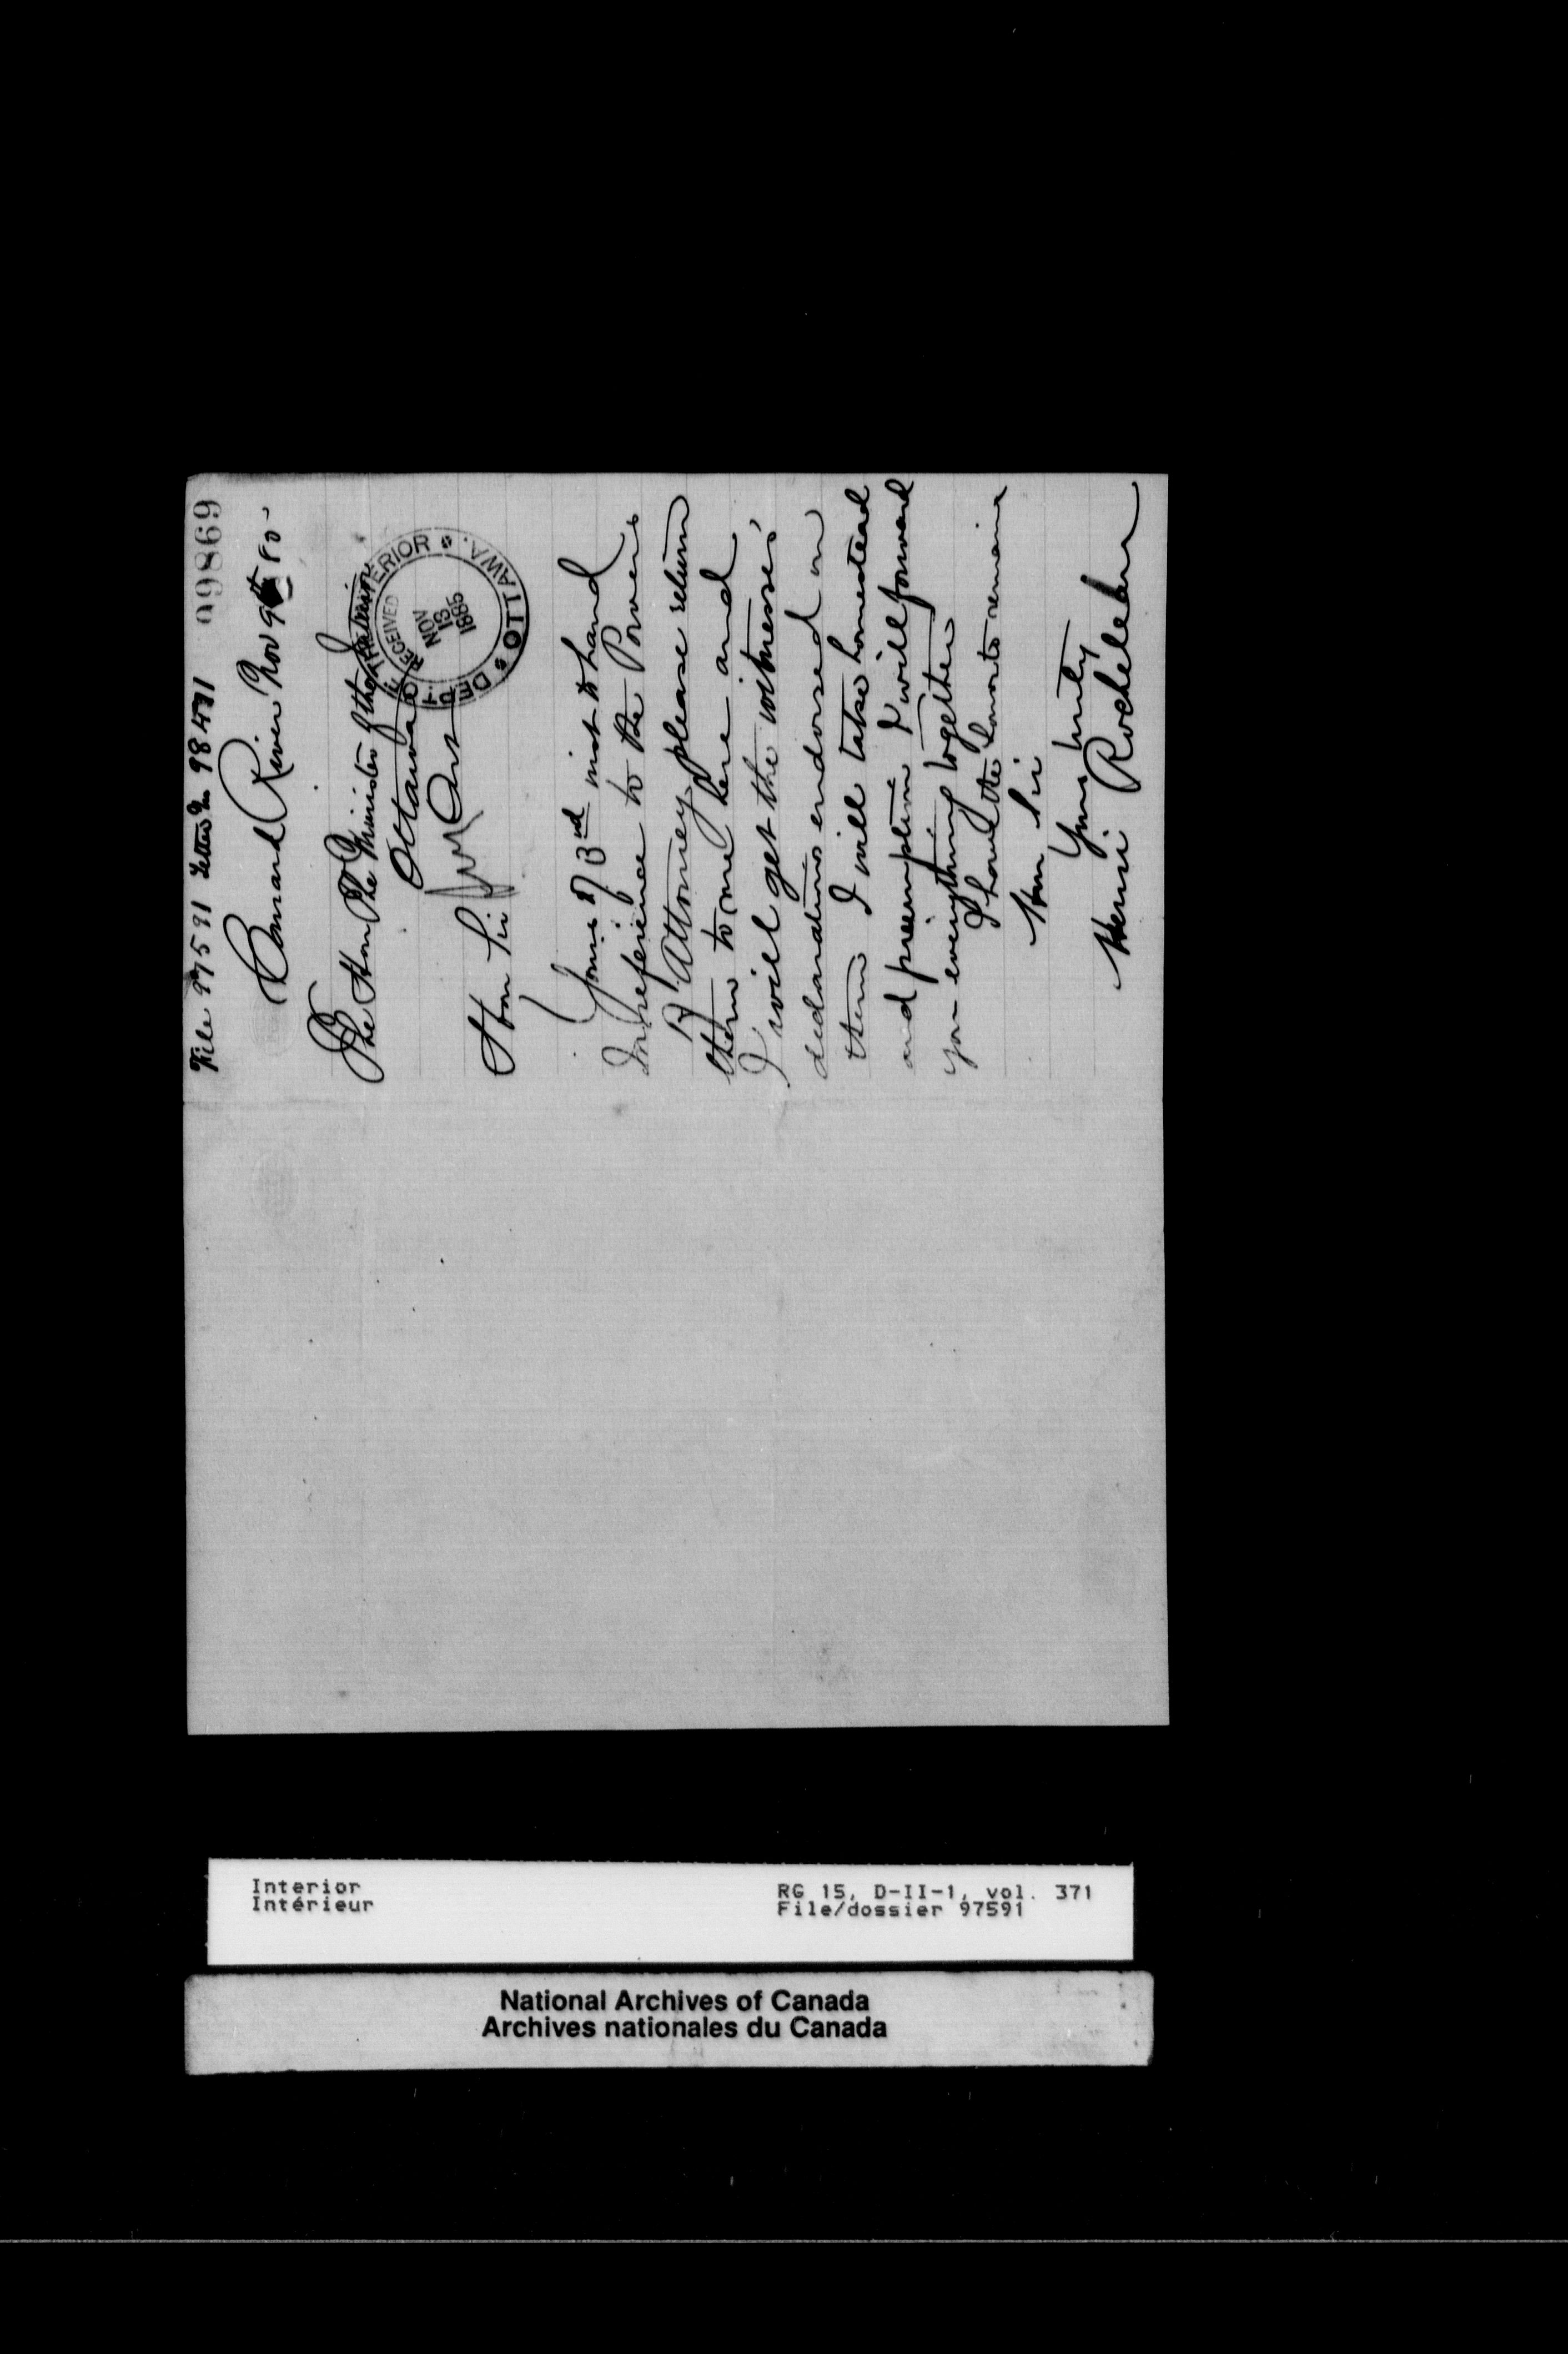 File 97591 Letter No 98471 99869
Barnard River Nov 9th 85
To
The Hon The Minister of the Interior
Ottawa
DEPT. OF THE INTERIOR
OTTAWA.
RECEIVED
NOV
13
1885
Hon Sir
Yours of 3rd inst to hand
In reference to the Powers
of Attorney please return
them to me here and
I will get the witnesses'
declarations endorsed on
them I will take homestead
and preemption I will forward
you everything together
I have the honor to remain
Hon Sir
Yours truly
Henri Rocheleau
Interior
Intérieur
RG 15, D-II-1, vol. 371
File/dossier 97591
National Archives of Canada
Archives nationales du Canada